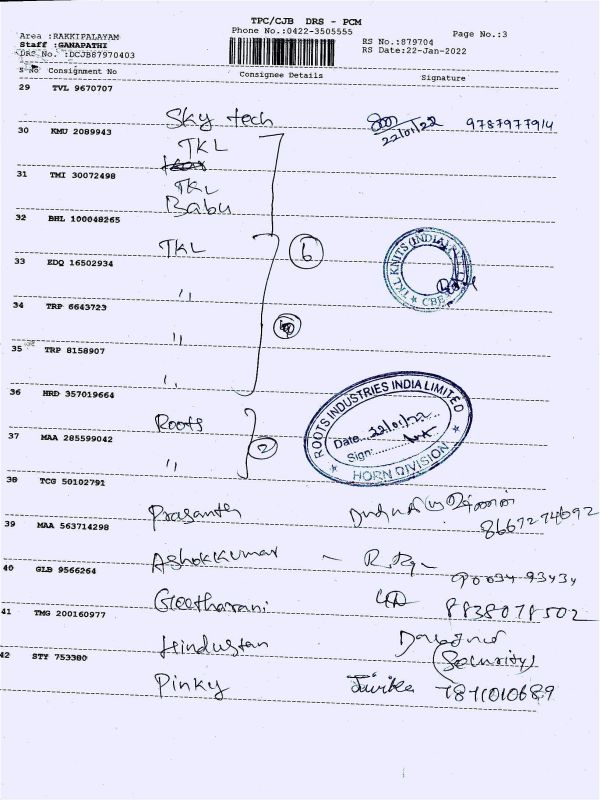 TPC/CJB DRS - PCM
Area :RAKKIPALAYAM Phone No.:0422-3505555 Page No.:3
Staff :GANAPATHI RS No.:879704
DRS No. :DCJB87970403 RS Date:22-Jan-2022
S No Consignment No Consignee Details Signature
29 TVL 9670707
Sky tech 22/01/22 9787977914
30 KMU 2089943
TKL
31 TMI 30072498
TKL
Babu
32 BHL 100048265
TKL 6
33 EDQ 16502934
"
34 TRP 6643723
"
35 TRP 8158907
"
TKL KNITS (INDIA)
CBE
36 HRD 357019664
Roots
37 MAA 285599042
" 2
ROOTS INDUSTRIES INDIA LIMITED
Date: 22/01/22
Sign:
HORN DIVISION
38 TCG 50102791
Prasanth 8667274692
39 MAA 563714298
Ashokkumar -
40 GLB 9566264
Geetharani 8838078502
41 TMG 200160977
Hindustan
(Security)
42 STY 753380
Pinky 7871010689